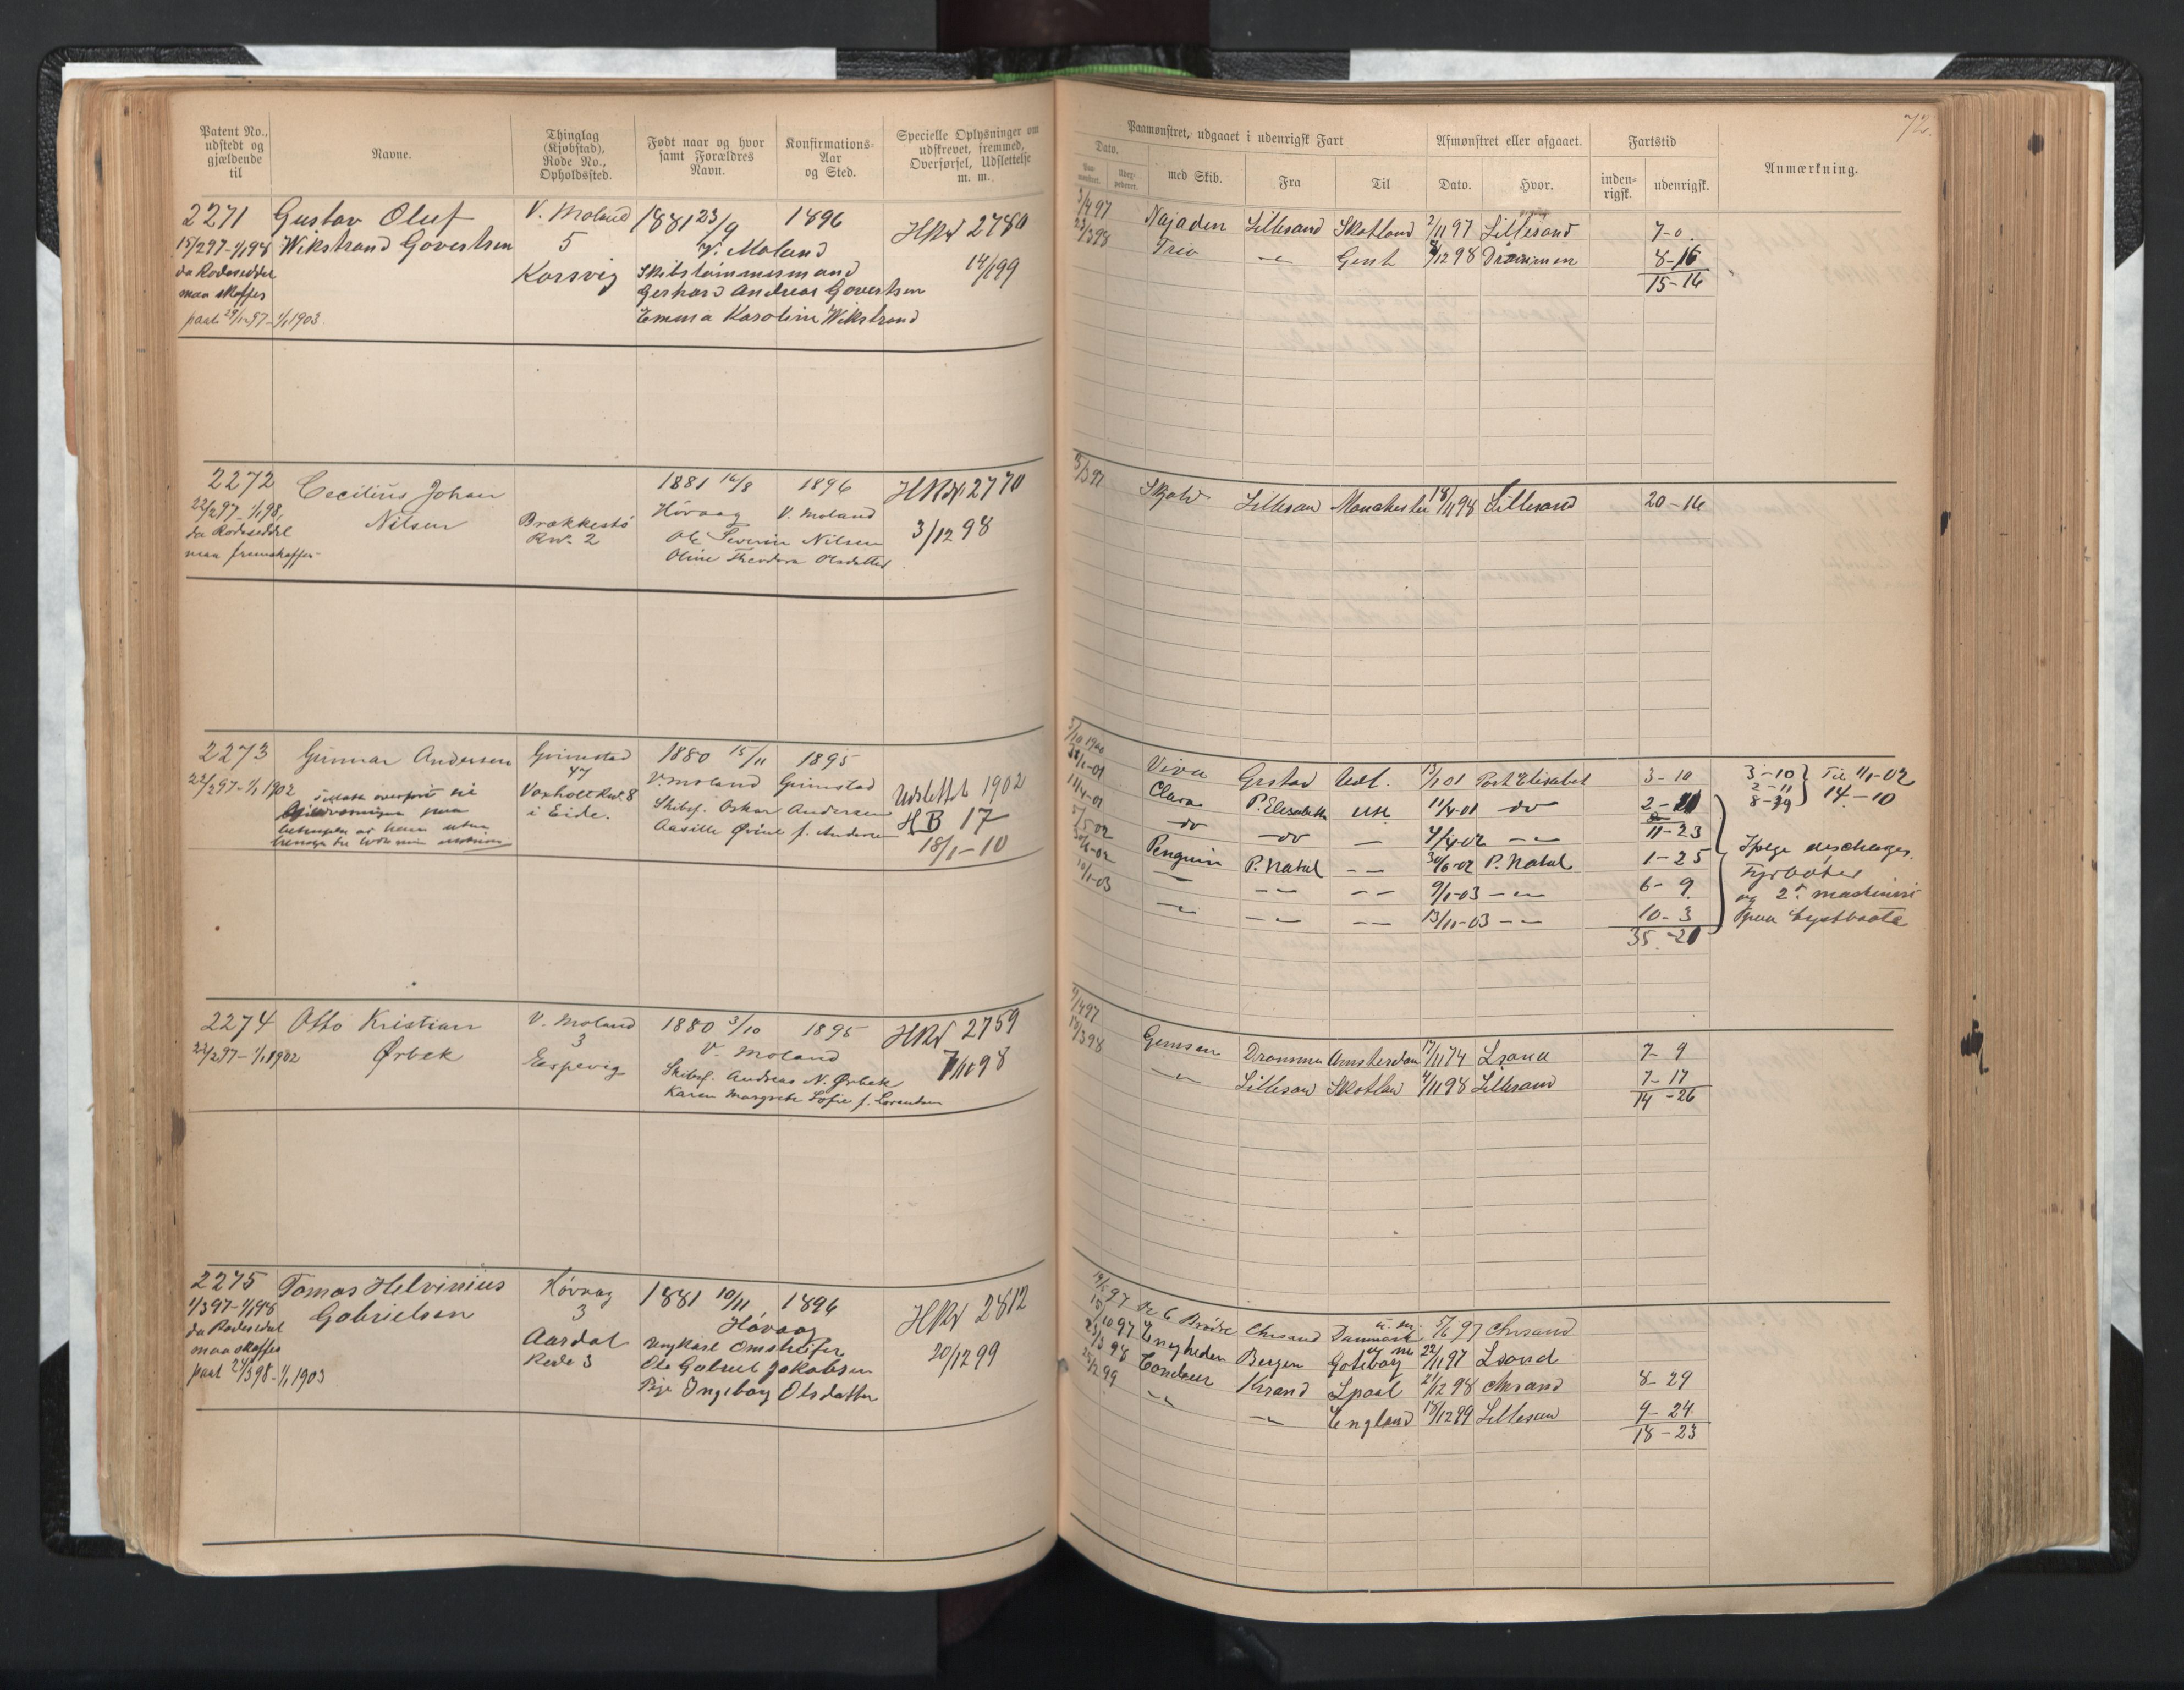 72.
Patent No., udstedt og gjældende til
Navne.
Thinglag (Kjøbstad), Rode No., Opholdssted.
Født naar og hvor samt Forældres Navn.
Konfirmations-Aar og Sted.
Specielle Oplysninger om udskrevet, fremmed, Overførsel, Udslettelse m. m.
Paamønstret, udgaaet i udenrigsk Fart
Dato.
med Skib.
Fra
Til
Afmønstret eller afgaaet.
Dato.
Hvor.
Fartstid
inden-rigsk.
udenrigsk.
Anmærkning.
2271 Gustav Oluf V. Moland 1881 23/9 1896 HRd 2780
15/2 97 - 1/1 98 Wikstrand Govertsen 5 V. Moland
da Rodeseddel Korsvig Skibstømmermand 14/1 99
maa skaffes Gerhard Andreas Govertsen
paal 29/12 97 - 1/1 1903 Emma Karoline Wikstrand
3/4 97 Najaden Lillesand Skotland 2/11 97 Lillesand 7-0
23/3 98 Trio -"- Gent 4/12 98 Drammen 8-16
15-16
2272 Cecilius Johan 1881 16/8 1896 HRd 2770
22/2 97 - 1/1 98, Nilsen Brækkestø Høvaag V. Moland
da Rodeseddel Rd. 2 Ole Severin Nilsen 3/12 98
maa fremskaffes Oline Theodora Olsdatter
3/3 97 Skjold Lillesan Manchester 18/11 98 Lillesand 20-16
2273 Gunnar Andersen Grimstad 1880 15/11 1895
22/2 97 - 1/1 1902 47 V. Moland Grimstad Udslettet 1902
Voxholt Rod. 8 Skibsf. Oskar Andersen HB 17
i Eide. Aasille Øvine f. Andersen 18/1-10
5/10 1900 Viva Grstad Udl. 13/1 01 Port Elisabet 3-10
Clara P. Elisabeth USA 11/4-01 -do- 2-
11/4-01 -do- -do- — 4/4 02 - - 11-23
5/5-02 Penguin P. Natal - - 30/6-02 P. Natal 1-25
-"- - - - - 9/1-03 - - 6-9
10/1-03 -"- - - - - 13/11-03 - - 10-3
35-21
3-10 } Til 1/1-02
2-11
8-29 } 14-10
Ifølge discharges.
Fyrbøter
og 2. maskinist
paa Lystbaate
2274 Otto Kristian V. Moland 1880 3/10 1895 HRd 2759
22/2 97 - 1/1 1902 Ørbek 3 V. Moland
Eespevig Skibsf. Andreas N. Ørbek 7/11 98
Karen Margrethe Sofie f. Lorentsen
9/4 97 Gemsen Drammen Amsterdam 17/11 74 Lsand 7-9
10/3 98 -"- Lillesan Skotlan 4/11 98 Lillesand 7-17
14-26
2275 Tomas Helvinius Høvaag 1881 10/11, 1896 HRd 2812
1/3 97 - 1/1 98 Gabrielsen 3 Høvaag
da Rodeseddel Aardal Ungkarl Omstreifer 20/12 99
maa skaffes Rode 3 Ole Gabriel Jakobsen
paal 24/3 98 - 1/1 1903 Pige Ingeborg Olsdatter
14/5 97 De 6 Brødre Chrsand Danmark 5/6 97 Chrsand
15/10 97 Enigheden Bergen Gøteborg 22/11 97 Lsand
23/3 98 Condour Krsand Lpool 21/12 98 Chrsand 8-29
25/2 99 -"- -"- England 18/12 99 Lillesan 9-24
18-23